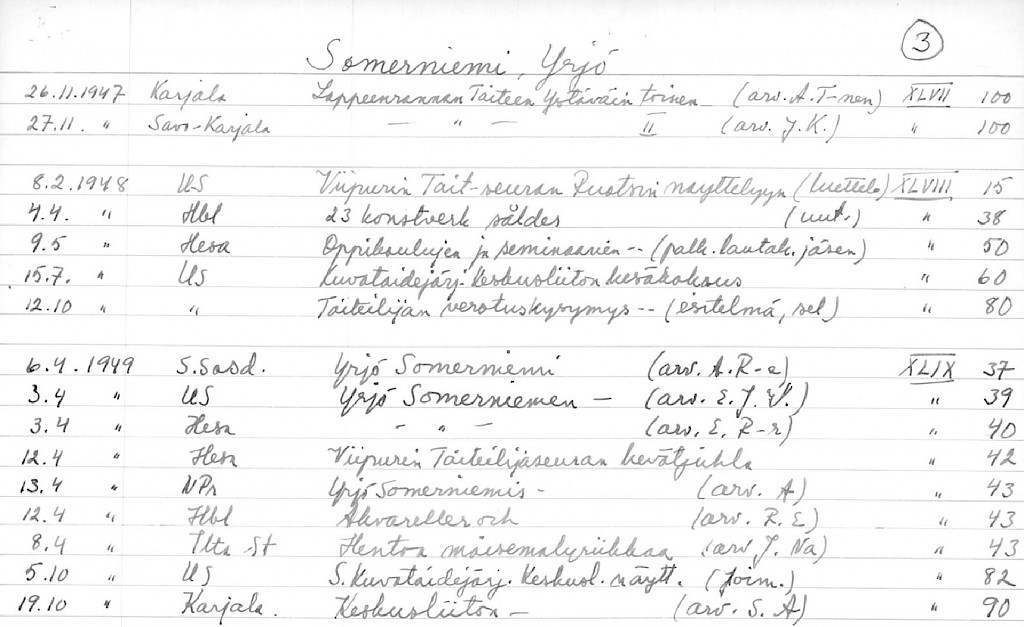 3
Somerniemi, Yrjö
26.11.1947 Karjala Lappeenrannan Taiteen Ystäväin toinen — (arv. A.T-nen) XLVII 100
27.11. " Savo-Karjala — " — II (arv. J.K.) " 100
8.2.1948 US Viipurin Tait-seuran Ruotsin näyttelyyn (luettelo) XLVIII 15
4.4. " Hbl 23 konstverk såldes (uut.) " 38
9.5 " Hesa Oppikoulujen ja seminaarien -- (palk. lautak. jäsen) " 50
15.7. " US Kuvataidejärj. Keskusliiton kesäkokous " 60
12.10 " " Taiteilijan verotuskysymys -- (esitelmä, sel) " 80
6.4.1949 S.Sosd. Yrjö Somerniemi (arv. A. R-a) XLIX 37
3.4 " US Yrjö Somerniemen — (arv. E.J.V.) " 39
3.4 " Hesa - " - (arv. E. R-r) " 40
12.4 " Hesa Viipurin Taiteilijaseuran kevätjuhla " 42
13.4 " NPr Yrjö Somerniemis - (arv. A) " 43
12.4 " Hbl Akvareller och (arv. R.E) " 43
8.4 " Ilta St Hentoa maisemalyriikkaa (arv J. Na) " 43
5.10 " US S. Kuvataidejärj. Keskusl. näytt. (toim.) " 82
19.10 " Karjala. Keskusliiton — (arv. S.A) " 90